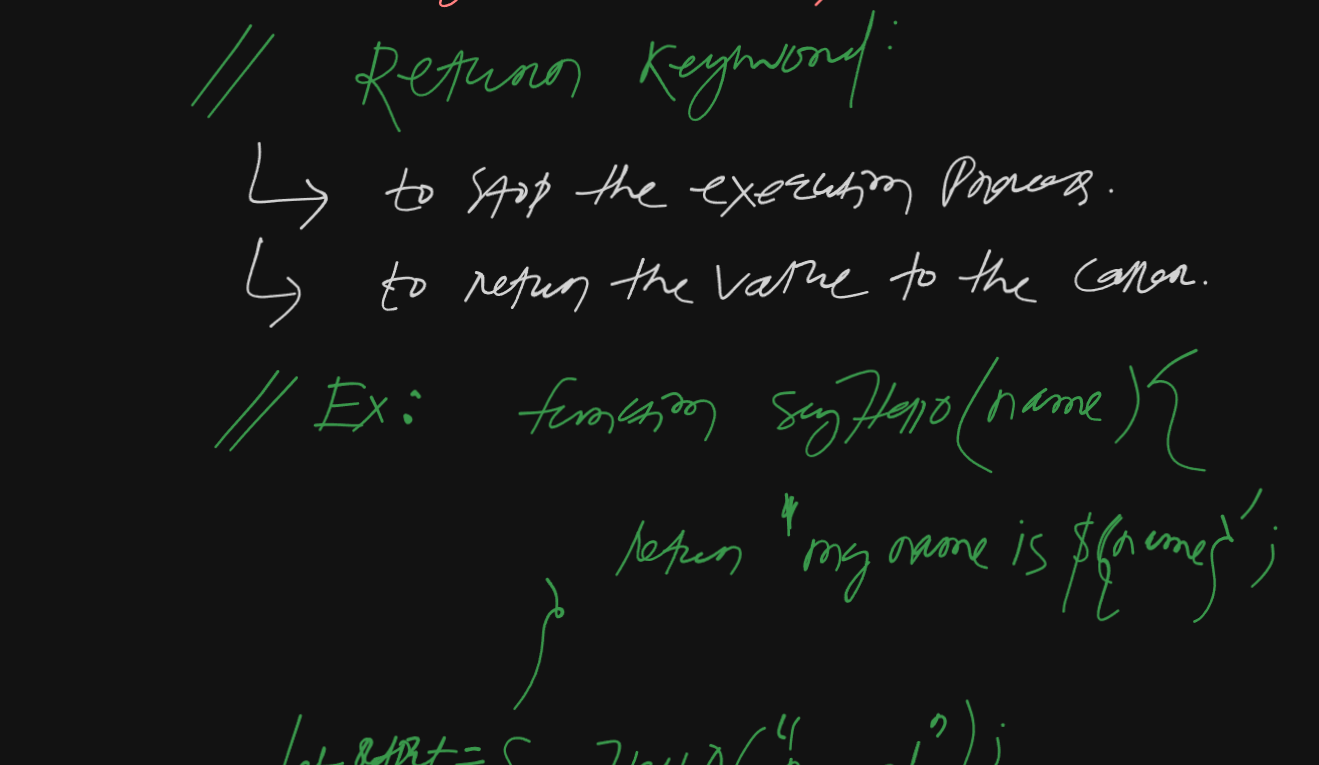 // Return Keyword:
↳ to stop the execution Process.
↳ to return the value to the caller.
// Ex: function sayHello(name){
return `my name is ${name}`;
}
let = ("